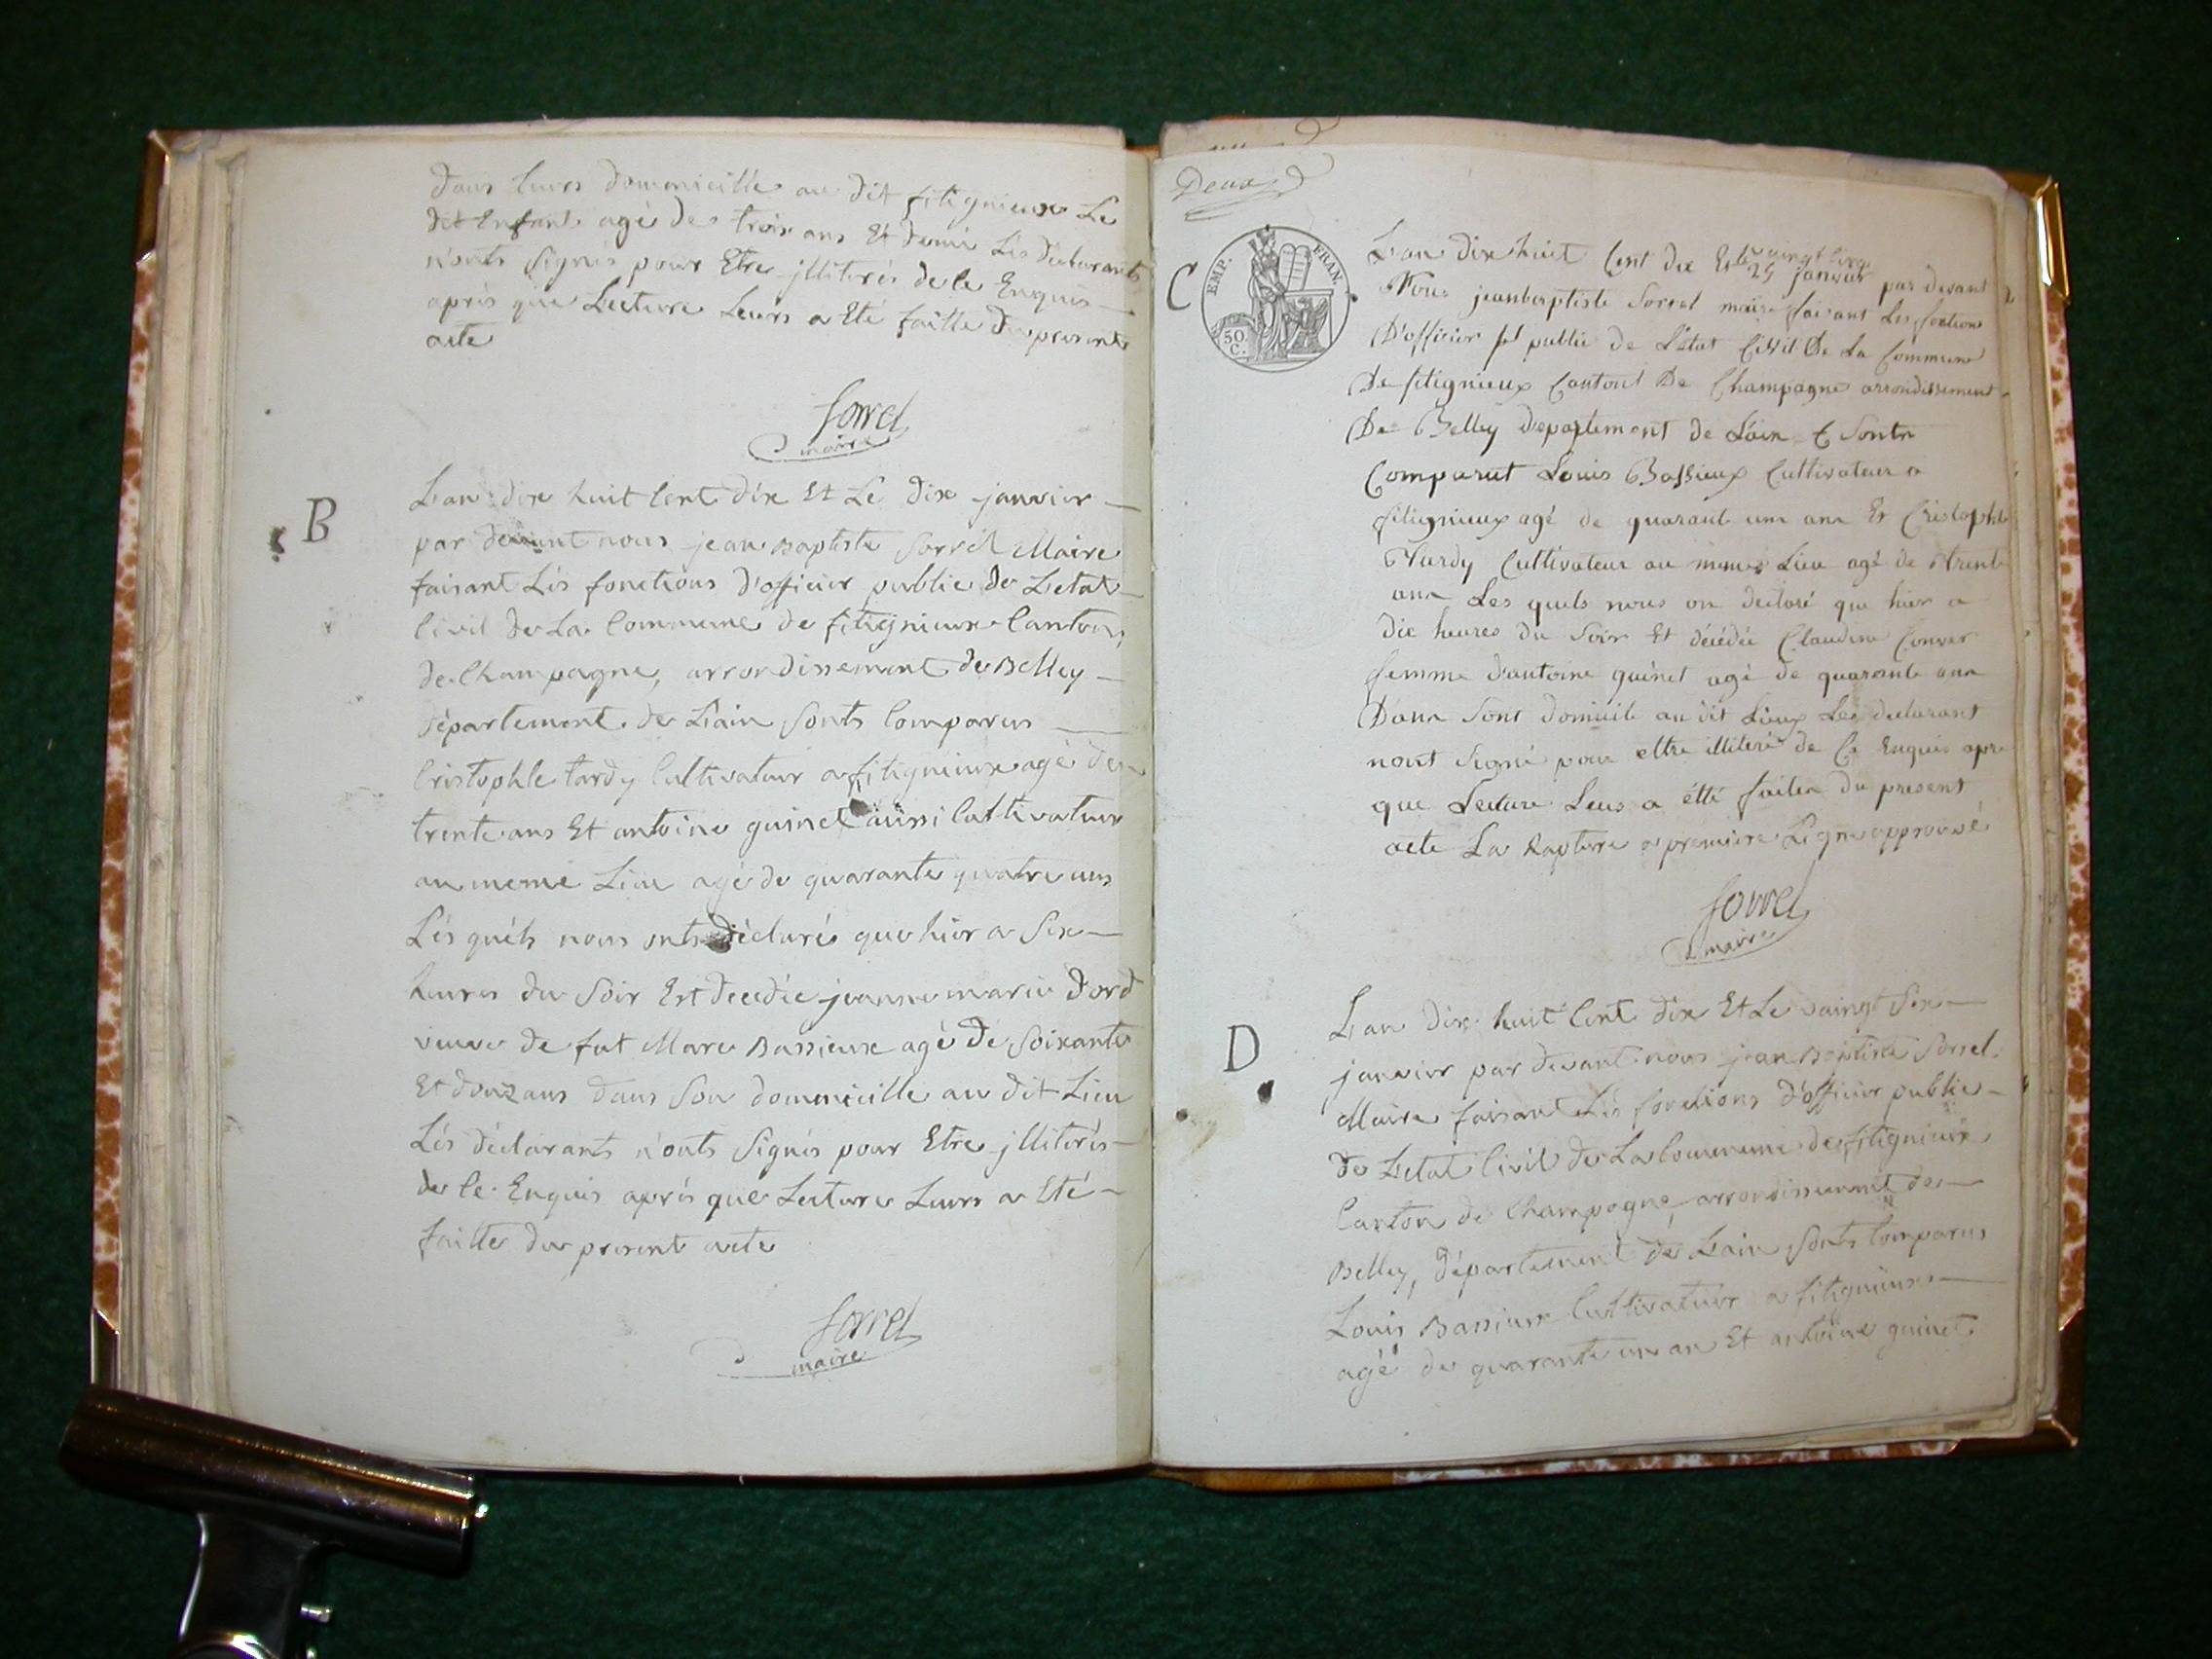 dans leurs dommicille au dit fitignieux Le
dit Enfant agé de trois ans Et demi Les déclarants
n'onts Signés pour Etre jlliterés de le Enquis
après que Lecture Leurs a Eté faitte du present
acte
Sorrel
maire
B
L'an dix huit Cent dix Et Le dix janvier
par devant nous jean Baptiste Sorrel Maire
faisant Lès fonctions d'officier public de Letat
Civil de La Commune de fitignieux Canton
de Champagne, arrondissement de Belley
département de Lain Sonts Comparus
Cristophle tardy Cultivateur a fitignieux agé de
trente ans Et antoine guinet aussi Cultivateur
au meme Lieu agé de quarante quatre ans
Lès quels nous onts déclarés que hier a Six
heures du Soir Est decedée jeanne marie Dord
veuve de fut Marc Bassieux agé de Soixante
Et douz ans dans Son dommicille au dit Lieu
Lès déclarants n'onts Signés pour Etre jlliterés
de le Enquis après que Lecture Leurs a Eté
faitte du present acte
Sorrel
maire
Deux
C
EMP. FRAN.
50 C.
L'an dix huit Cent dix Et le vaingt cinq
25 janvier par devant
Nous jeanbaptiste Sorrel maire faisant Les fontions
D'officier public de L'état Civil De La Commune
De fitignieux Canton De Champagne arrondissement
De Belley Departement de Lain Sonts
Comparut Louis Bassieux Cultivateur a
fitignieux agé de quarant un ans Et Cristophle
Tardy Cultivateur au meme Lieu agé de trente
ans Les quels nous on declaré que hier a
dix heures du Soir Et décédée Claudine Conver
femme d'antoine guinet agé de quarante ans
Dans Sont domicile au dit Lieux Les declarant
nont Signé pour ettre illiteré de Ce Enquis apre
que Lecture Leus a étté faites du present
acte La Rapture a premiere Ligne approuvé
Sorrel
maire
D
L'an dix huit Cent dix Et Le vaingt Six
janvier par devant nous jean Baptiste Sorrel
Maire faisant Lès fonctions d'officier public
de Letat Civil de La Commune de fitignieux
Canton de Champagne, arrondissement de
Belley, département de Lain Sonts Comparus
Louis Bassieux Cultivateur a fitignieux
agé de quarante un an Et antoine guinet